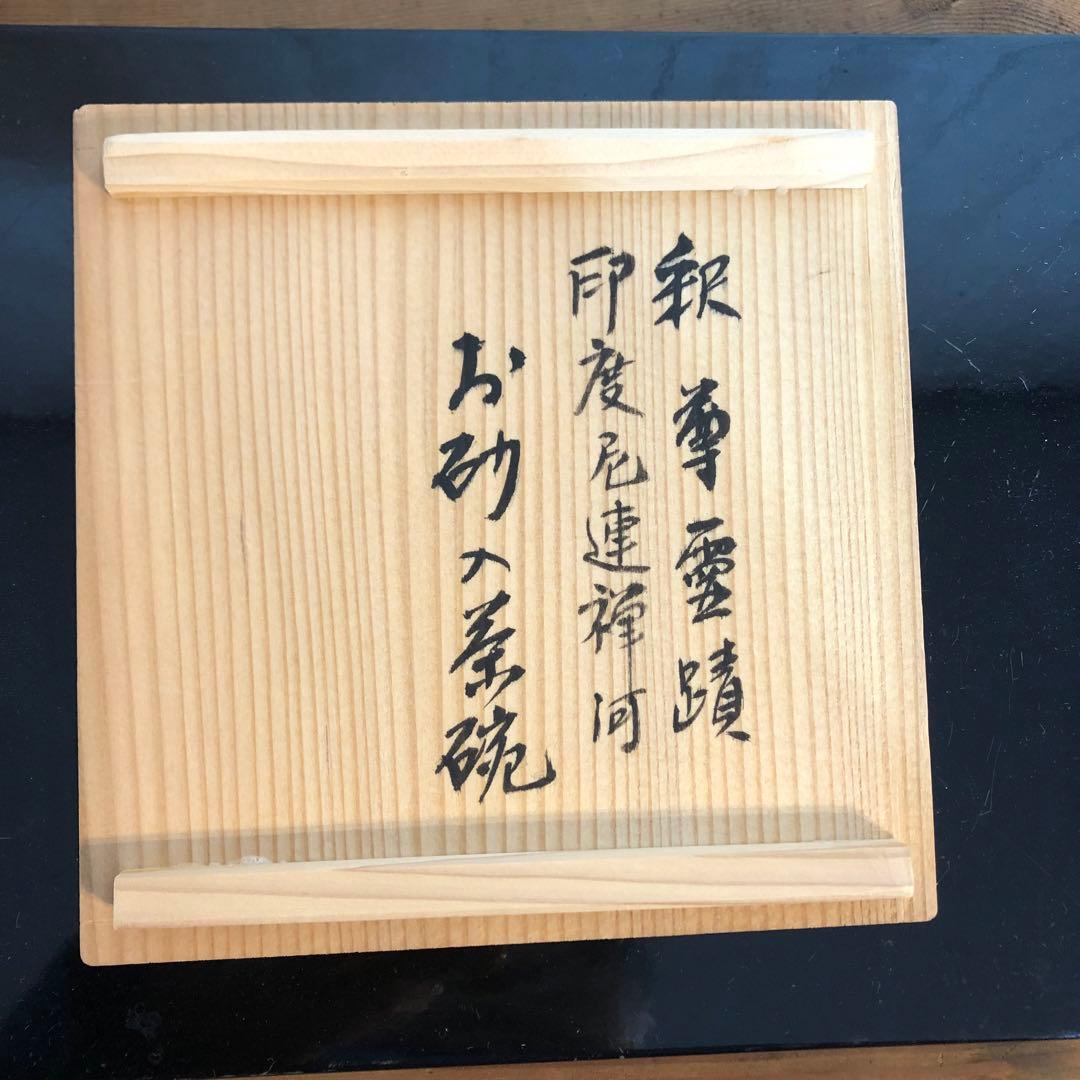 釈尊霊蹟
印度尼連禅河
お砂入茶碗